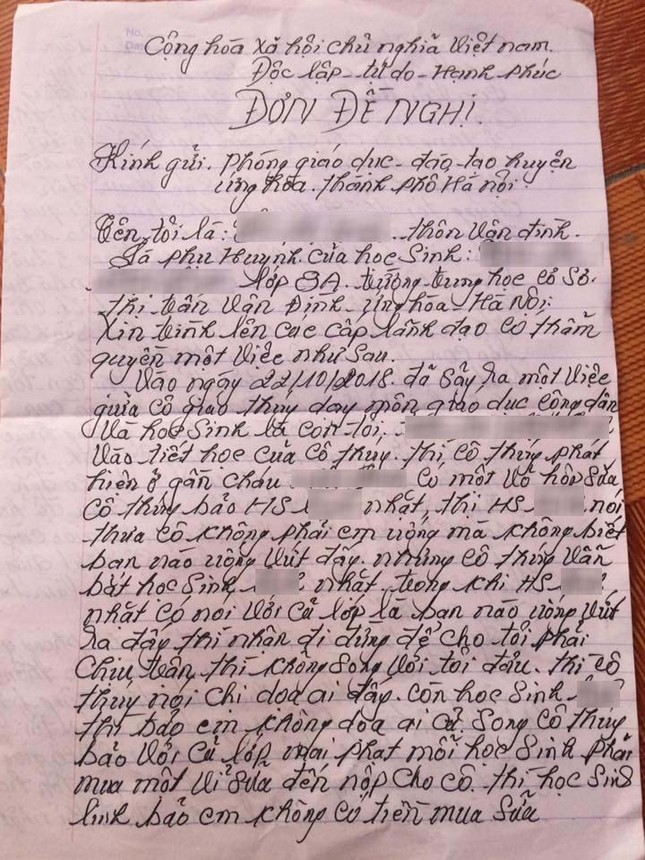 Cộng hòa Xã hội chủ nghĩa Việt nam.
Độc lập - tự do - Hạnh phúc
ĐƠN ĐỀ NGHỊ.
Kính gửi. Phòng giáo dục - đào tạo huyện
ứng hòa. thành phố Hà nội.
Tên tôi là: thôn Vân đình.
Là phụ Huynh của học Sinh:
lớp 8A. trường trung học cơ Sở.
thị trấn Vân Đình - ứng hòa - Hà Nội.
Xin trình lên các cấp lãnh đạo có thẩm
quyền một Việc như Sau.
Vào ngày 22/10/2018. đã Sẩy ra một Việc
giữa cô giáo thúy dạy môn giáo dục công dân
Và học Sinh là con tôi.
Vào tiết học của cô thúy. thì cô thúy phát
hiện ở gần cháu có một Vỏ hộp Sữa
cô thúy bảo HS nhặt, thì HS nói
thưa cô không phải em uống mà không biết
bạn nào uống Vứt đây. nhưng cô thúy Vẫn
bắt học Sinh nhặt. trong khi HS
nhặt có nói Với cả lớp là bạn nào uống Vứt
ra đây thì nhận đi đừng để cho tôi phải
chịu trận thì không Song Với tôi đâu. thì cô
thúy nói chị dọa ai đấy. còn học Sinh
thì bảo em không dọa ai cả. Song cô thúy
bảo Với cả lớp mai phạt mỗi học Sinh phải
mua một Vỉ Sữa đến nộp cho cô. thì học Sinh
linh bảo em không có tiền mua Sữa